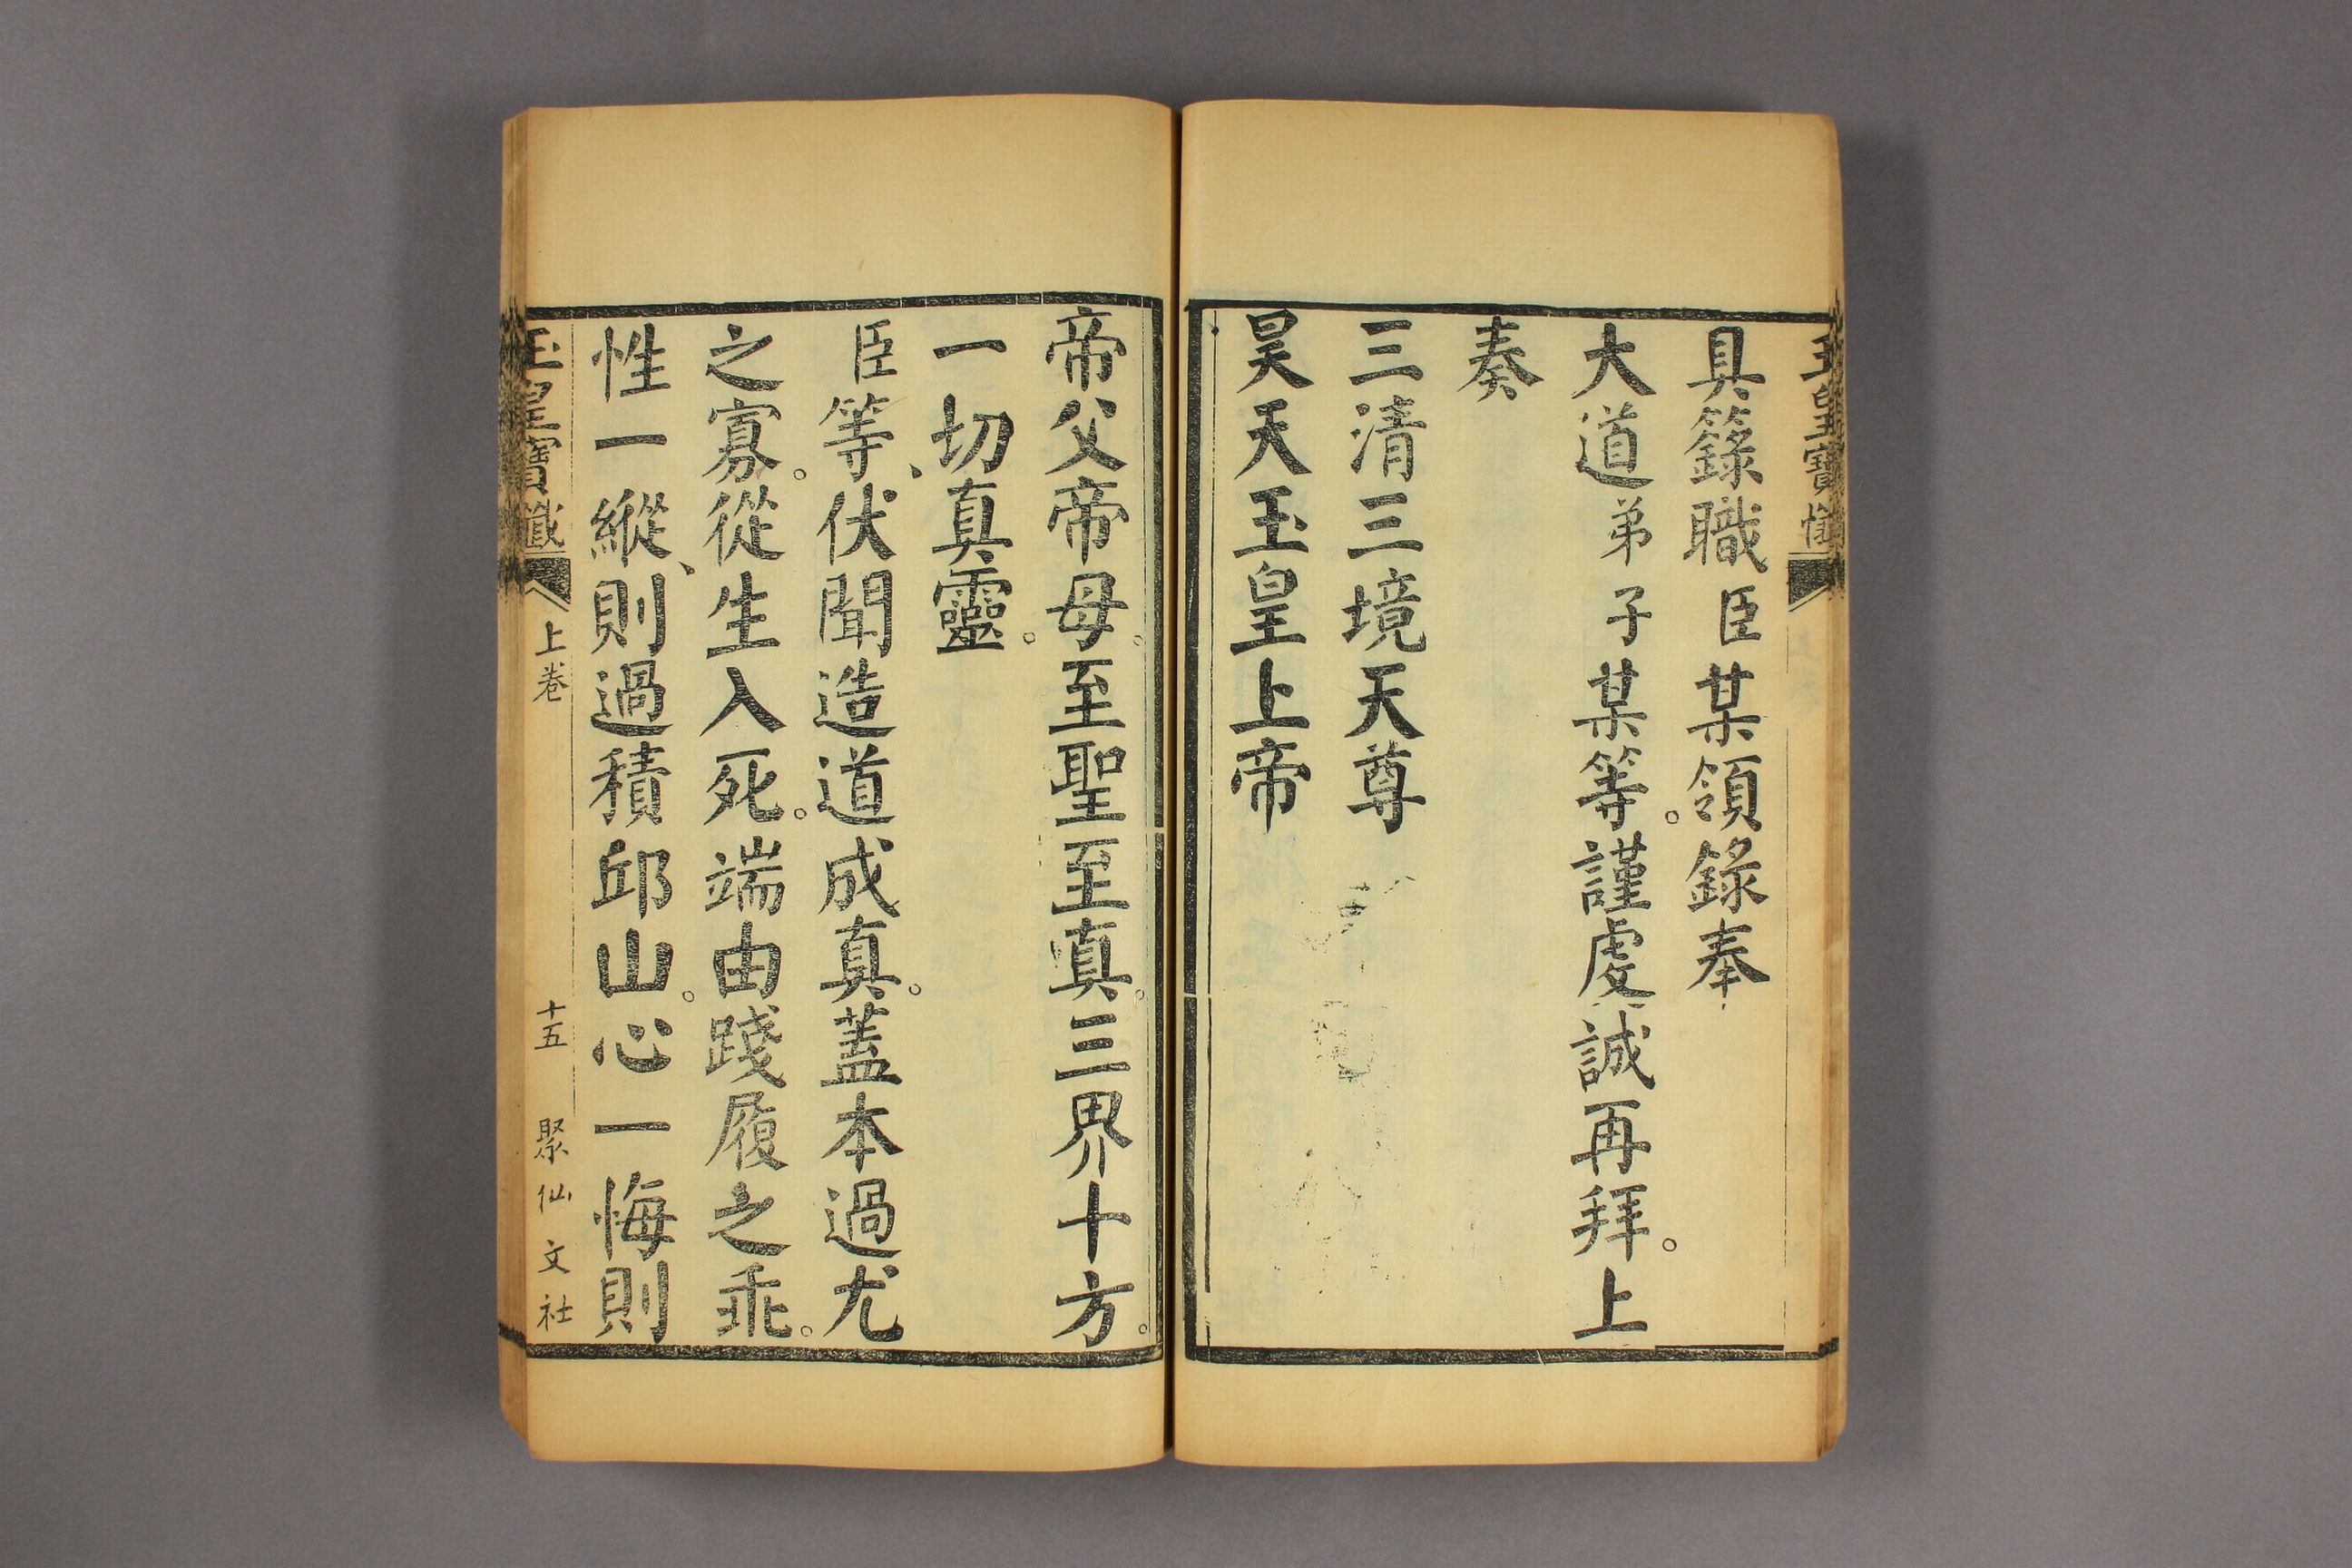 玉皇寶懺
具籙職臣某領錄奉
大道弟子某等。謹虔誠再拜。上
奏
三清三境天尊
昊天玉皇上帝
帝父帝母。至聖至真。三界十方。
一切真靈。
臣等、伏聞造道成真。蓋本過尤
之寡。從生入死。端由踐履之乖。
性一縱、則過積邱山。心一悔則
玉皇寶懺 上卷 十五 聚仙文社